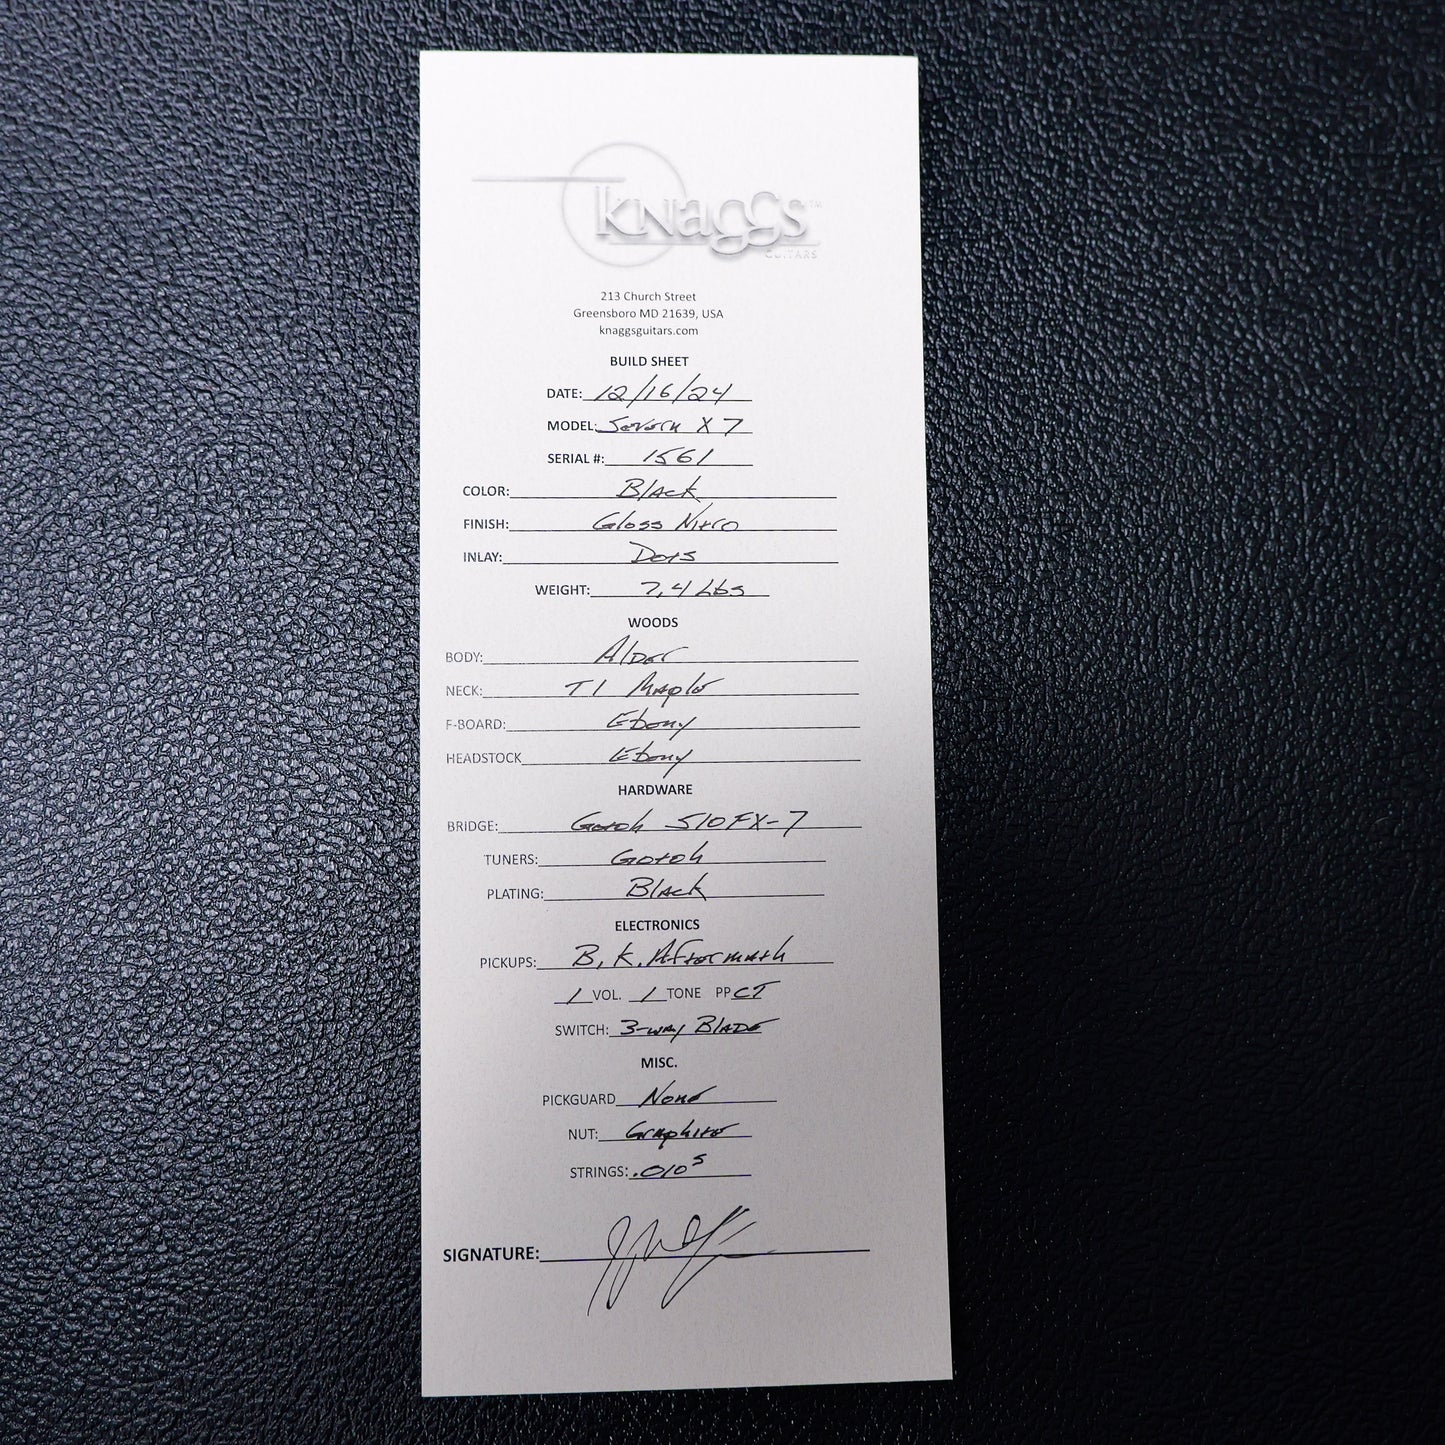 Knaggs™
GUITARS
213 Church Street
Greensboro MD 21639, USA
knaggsguitars.com
BUILD SHEET
DATE: 12/16/24
MODEL: Severn X 7
SERIAL #: 1561
COLOR: Black
FINISH: Gloss Nitro
INLAY: Dots
WEIGHT: 7.4 Lbs
WOODS
BODY: Alder
NECK: T1 Maple
F-BOARD: Ebony
HEADSTOCK Ebony
HARDWARE
BRIDGE: Gotoh 510FX-7
TUNERS: Gotoh
PLATING: Black
ELECTRONICS
PICKUPS: B.K. Aftermath
1 VOL. 1 TONE PP CT
SWITCH: 3-way Blade
MISC.
PICKGUARD None
NUT: Graphite
STRINGS: .010s
SIGNATURE: